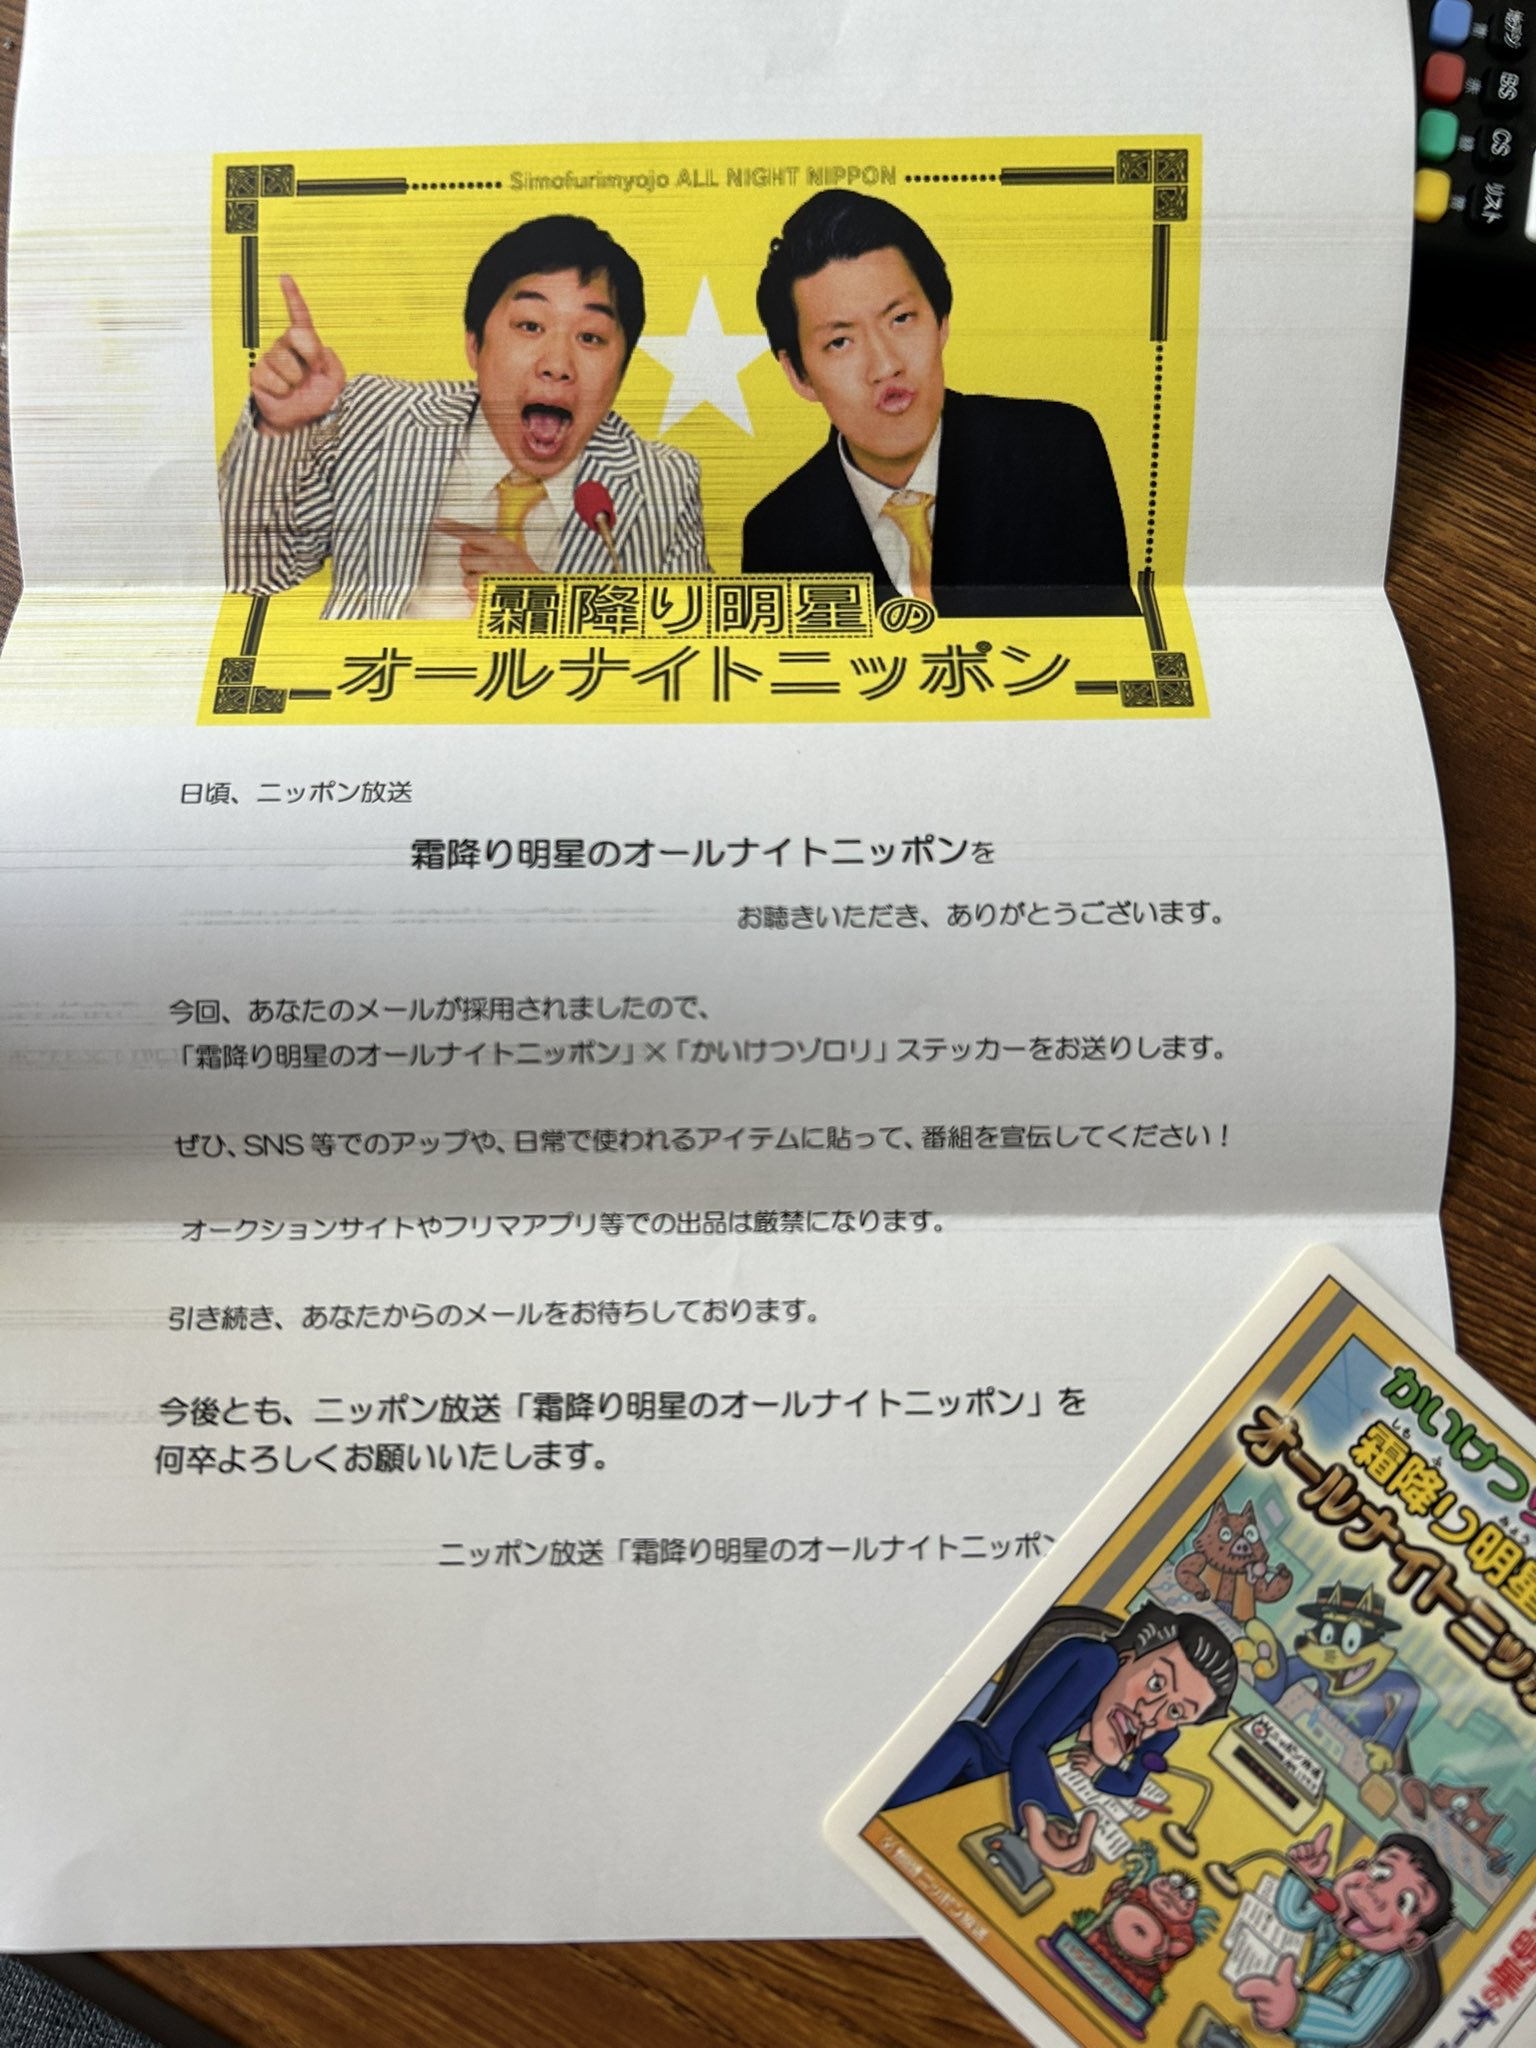 地デジ
青
BS
赤
CS
緑
リスト
Simofurimyojo ALL NIGHT NIPPON
霜降り明星の
オールナイトニッポン
日頃、ニッポン放送
霜降り明星のオールナイトニッポンを
お聴きいただき、ありがとうございます。
今回、あなたのメールが採用されましたので、
「霜降り明星のオールナイトニッポン」×「かいけつゾロリ」ステッカーをお送りします。
ぜひ、SNS 等でのアップや、日常で使われるアイテムに貼って、番組を宣伝してください！
オークションサイトやフリマアプリ等での出品は厳禁になります。
引き続き、あなたからのメールをお待ちしております。
今後とも、ニッポン放送「霜降り明星のオールナイトニッポン」を
何卒よろしくお願いいたします。
ニッポン放送「霜降り明星のオールナイトニッポン
かいけつ
しも ふ
霜降り明星
オールナイトニッポ
ニッポン放送